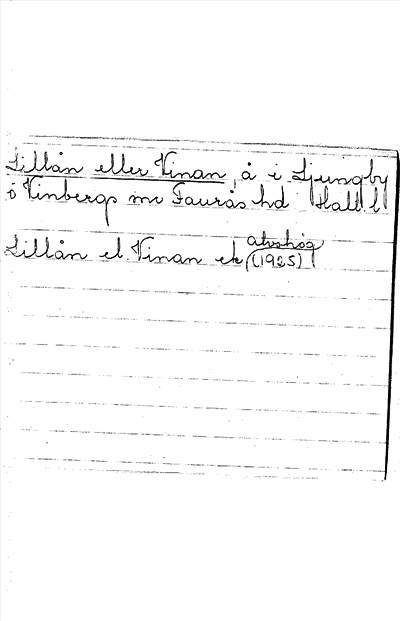 Lillån eller Vinan, å i Ljungby
o Vinbergs snr Faurås hd Hall l
Lillån el Vinan ek (1925)